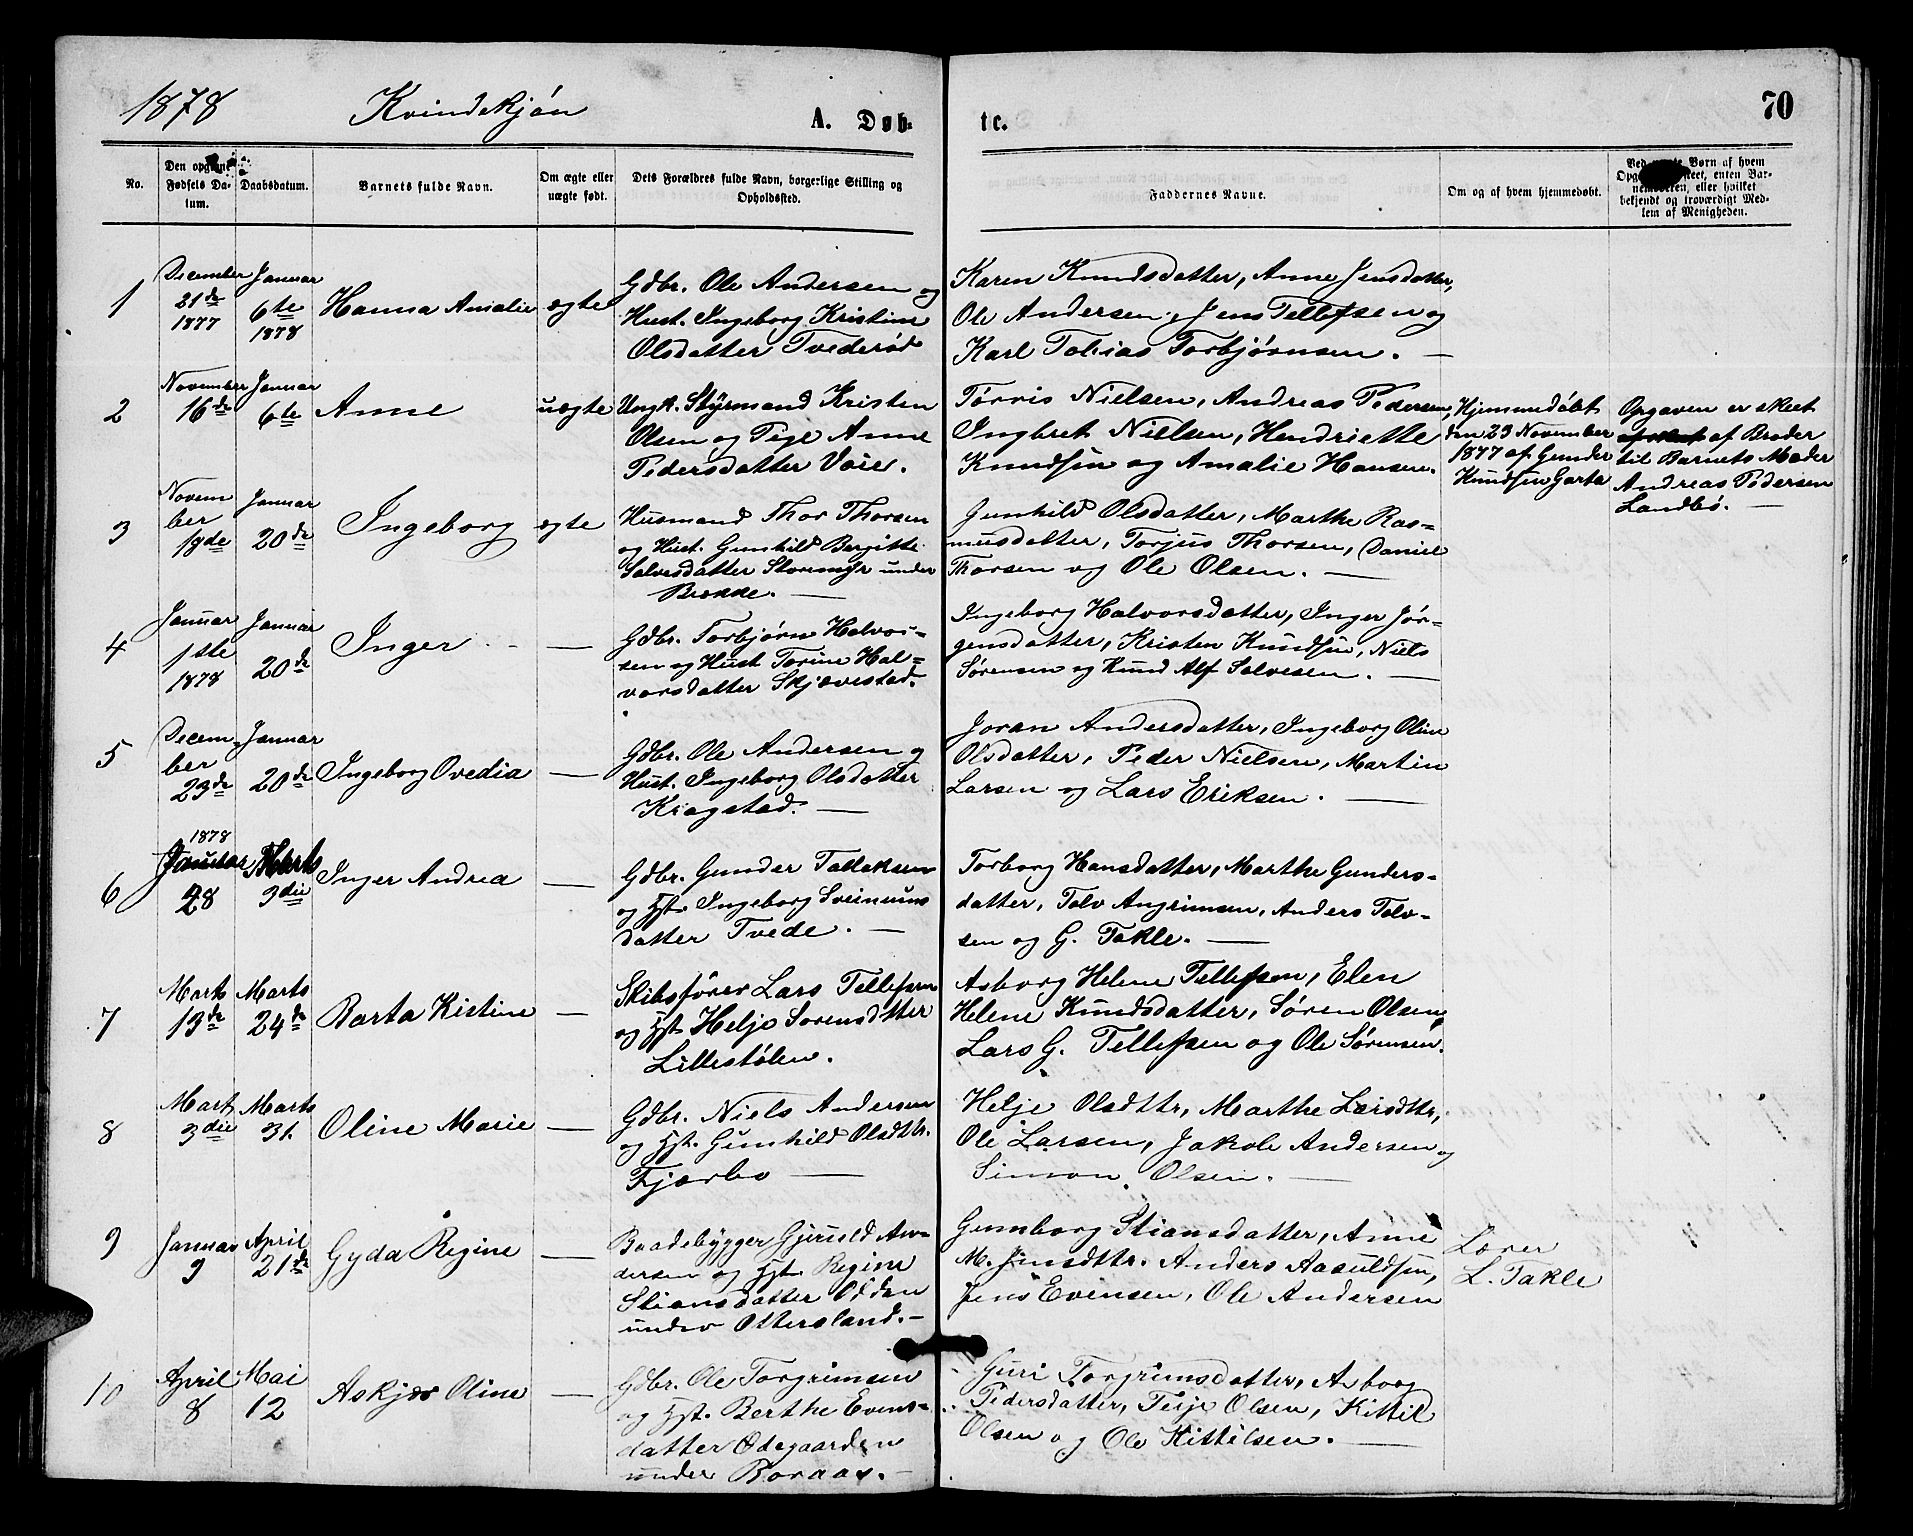 1878 Kvindekjøn A. Døb- te. 70
No.
Den opgivne Fødsels Datum.
Daabsdatum.
Barnets fulde Navn.
Om ægte eller uægte født.
Dets Forældres fulde Navn, borgerlige Stilling og Opholdssted.
Faddernes Navne.
Om og af hvem hjemmedøbt.
Ved uægte Børn af hvem
enten Bar-
eller hvilket
bekjendt og troværdigt Med-
lem af Menigheden.
1
December
21de
1877
Januar
6te
1878
Hanna Amalie
ægte
Gdbr. Ole Andersen og
Hust. Ingeborg Kristine
Olsdatter Tvederød
Karen Knudsdatter, Anne Jensdatter,
Ole Andersen, Jens Tellefsen og
Karl Tobias Torbjørnsen. —
2
November
16de
Januar
6te
Anne
uægte
Ungk. Styrmand Kristen
Olsen og Pige Anne
Pedersdatter Voie.
Tørris Nielsen, Andreas Pedersen,
Ingbret Nielsen, Hendriette
Knudsen og Amalie Hansen.
Hjemmedøbt
den 23 November
1877 af Gunder
Knudsen Garta
Opgaven er skeet
af Broder
til Barnets Moder
Andreas Pedersen
Landbø. —
3
Novem
ber
18de
Januar
20de
Ingeborg
ægte
Husmand Thor Thorsen
og Hust. Gunhild Bergitte
Salvesdatter Storemyr under
Brekke. —
Gunhild Olsdatter, Marthe Ras-
musdatter, Torjus Thorsen, Daniel
Thorsen og Ole Olsen. —
4
Januar
1ste
1878
Januar
20de
Inger
—
Gdbr. Torbjørn Halvor-
sen og Hust Torine Hal-
vorsdatter Skjævestad.
Ingeborg Halvorsdatter, Inger Jør-
gensdatter, Kristen Knudsen, Niels
Sørensen og Knud Alf Salvesen. —
5
Decem-
ber
23de
Januar
20de
Ingeborg Ovedia
—
Gdbr. Ole Andersen og
Hust. Ingeborg Olsdatter
Kragstad. —
Joran Andersdatter, Ingeborg Oline
Olsdatter, Peder Nielsen, Martin
Larsen og Lars Eriksen. —
6
1878
Januar
28
Marts
3die
Inger Andrea
—
Gdbr. Gunder Tallaksen
og Hst. Ingeborg Sveinums
datter Tvede. —
Torborg Hansdatter, Marthe Gunders-
datter, Tolv Angrimsen, Anders Tolv-
sen og G. Takle. —
7
Marts
13de
Marts
24de
Barta Kistine
—
Skibsfører Lars Tellefsen
og Hst. Helje Sørensdatter
Lillestølen.
Asborg Helene Tellefsen, Elen
Helene Knudsdatter, Søren Olsen,
Lars G. Tellefsen og Ole Sørensen.
8
Mart
3die
Marts
31.
Oline Marie
—
Gdbr. Niels Andersen
og Hst. Gunhild Olsdtr.
Fjærbo —
Helje Olsdtr, Marthe Larsdtr,
Ole Larsen, Jakob Andersen og
Simon Olsen. —
9
Januar
9
April
21de
Gyda Regine
—
Baadebygger Gjeruld An-
dersen og Hst. Regine
Stiansdatter Odden
under Ottersland. —
Gunborg Stiansdatter, Anne
M. Jensdtr. Anders Aasuldsen,
Jens Evensen, Ole Andersen
Lærer
L. Takle
10
April
8
Mai
12
Askjær Oline
—
Gdbr. Ole Torgrimsen
og Hst. Berthe Evens-
datter Ødegaarden
under Boraas. —
Guri Torgrimsdatter, Asborg
Pedersdatter, Terje Olsen, Kittil
Olsen og Ole Kittilsen. —